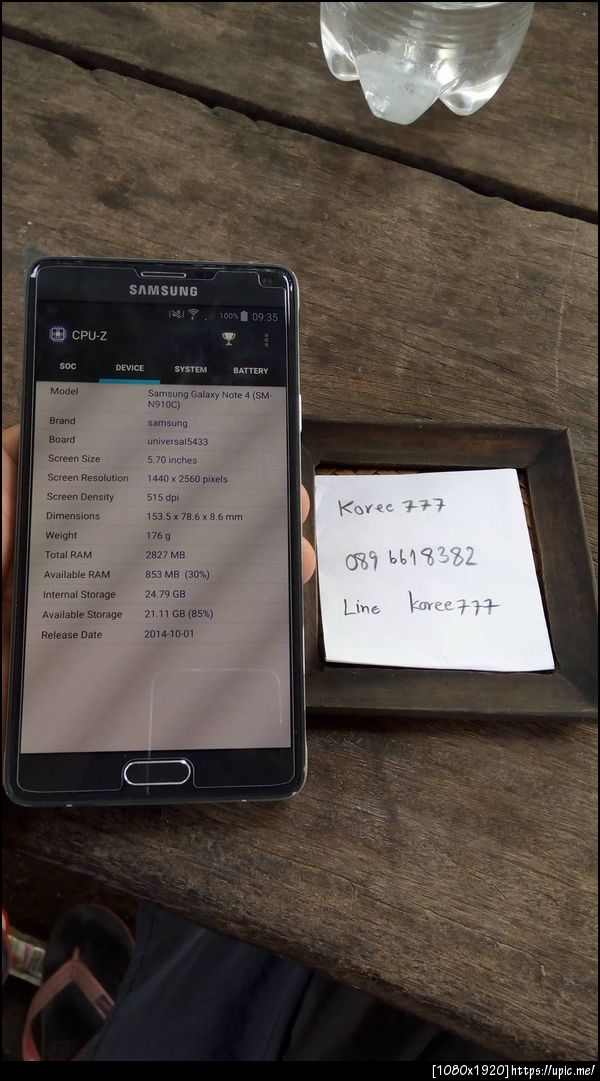 SAMSUNG
100% 09:35
CPU-Z
SOC DEVICE SYSTEM BATTERY
Model Samsung Galaxy Note 4 (SM-
N910C)
Brand samsung
Board universal5433
Screen Size 5.70 inches
Screen Resolution 1440 x 2560 pixels
Screen Density 515 dpi
Dimensions 153.5 x 78.6 x 8.6 mm
Weight 176 g
Total RAM 2827 MB
Available RAM 853 MB (30%)
Internal Storage 24.79 GB
Available Storage 21.11 GB (85%)
Release Date 2014-10-01
Koree 777
089 6618382
Line koree777
[1080x1920]https://upic.me/